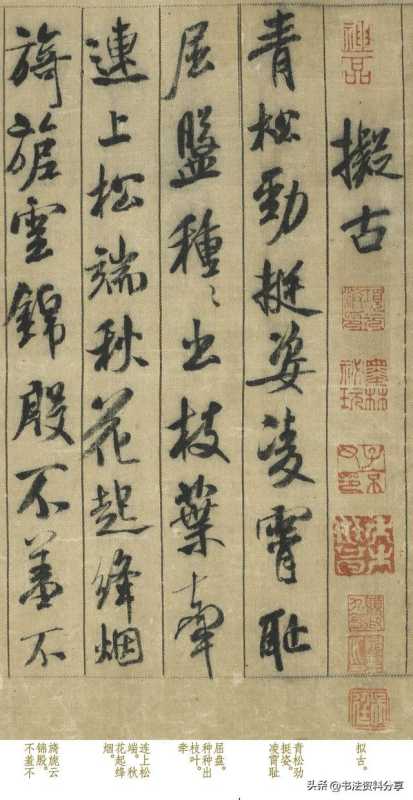 神品
擬古
青松勁挺姿凌霄耻
屈盤種〻出枝葉牽
連上松端秋花起絳烟
旖旎雲錦殷不羞不
拟古。
青松劲
挺姿。
凌霄耻
屈盘。
种种出
枝叶。
牵
连上松
端。秋
花起绛
烟。
旖旎云
锦殷。
不羞不
头条 @书法资料分享